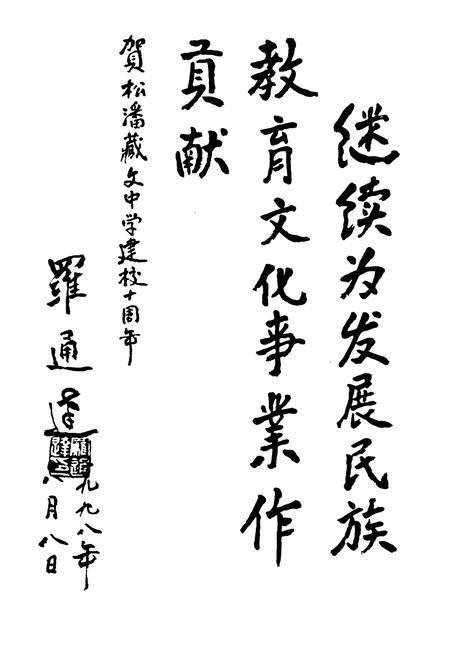 继续为发展民族
教育文化事業作
貢献
賀松潘藏文中学建校十周年
羅通達
九九八年
八月八日